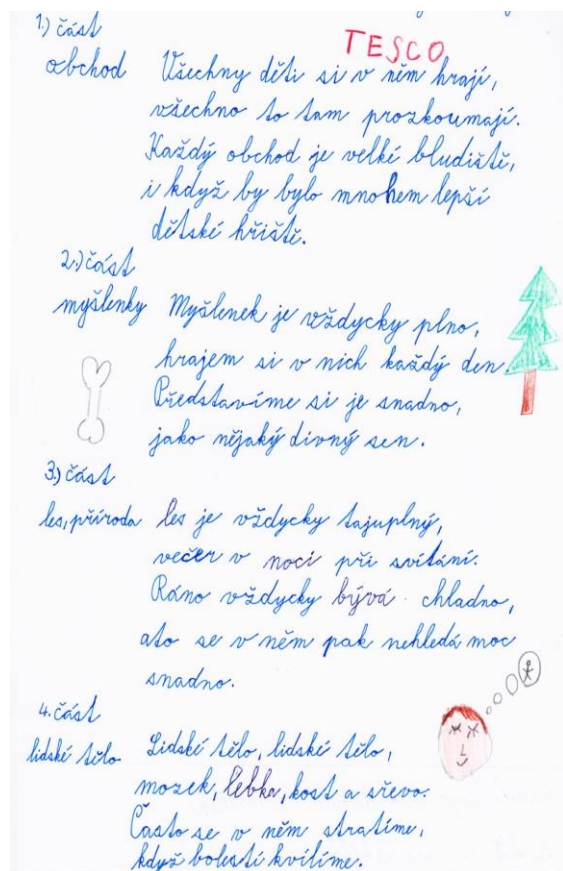 1.) část
TESCO
obchod Všechny děti si v něm hrají,
všechno to tam prozkoumají.
Každý obchod je velké bludiště,
i když by bylo mnohem lepší
dětské hřiště.
2.) část
myšlenky Myšlenek je vždycky plno,
hrajem si v nich každý den.
Představíme si je snadno,
jako nějaký divný sen.
3.) část
les, příroda les je vždycky tajuplný,
večer v noci při svítání.
Ráno vždycky bývá chladno,
a to se v něm pak nehledá moc
snadno.
4. část
lidské tělo Lidské tělo, lidské tělo,
mozek, lebka, kost a střevo.
Často se v něm stratíme,
když bolestí kvílíme.